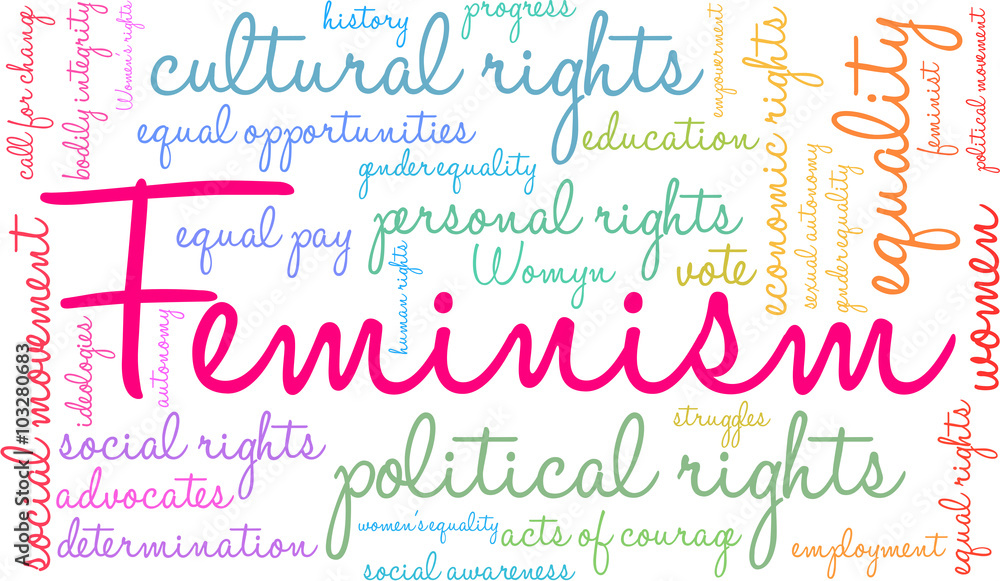 call for change
bodily integrity
Women's rights
history
progress
cultural rights
empowerment
economic rights
equality
feminist
political movement
equal opportunities
education
gender equality
sexual autonomy
gender equality
equal pay
personal rights
Womyn
vote
human rights
women
Feminism
social movement
ideologies
autonomy
struggles
social rights
political rights
equal rights
advocates
women's equality
acts of courage
determination
employment
social awareness
Adobe Stock | #103280683